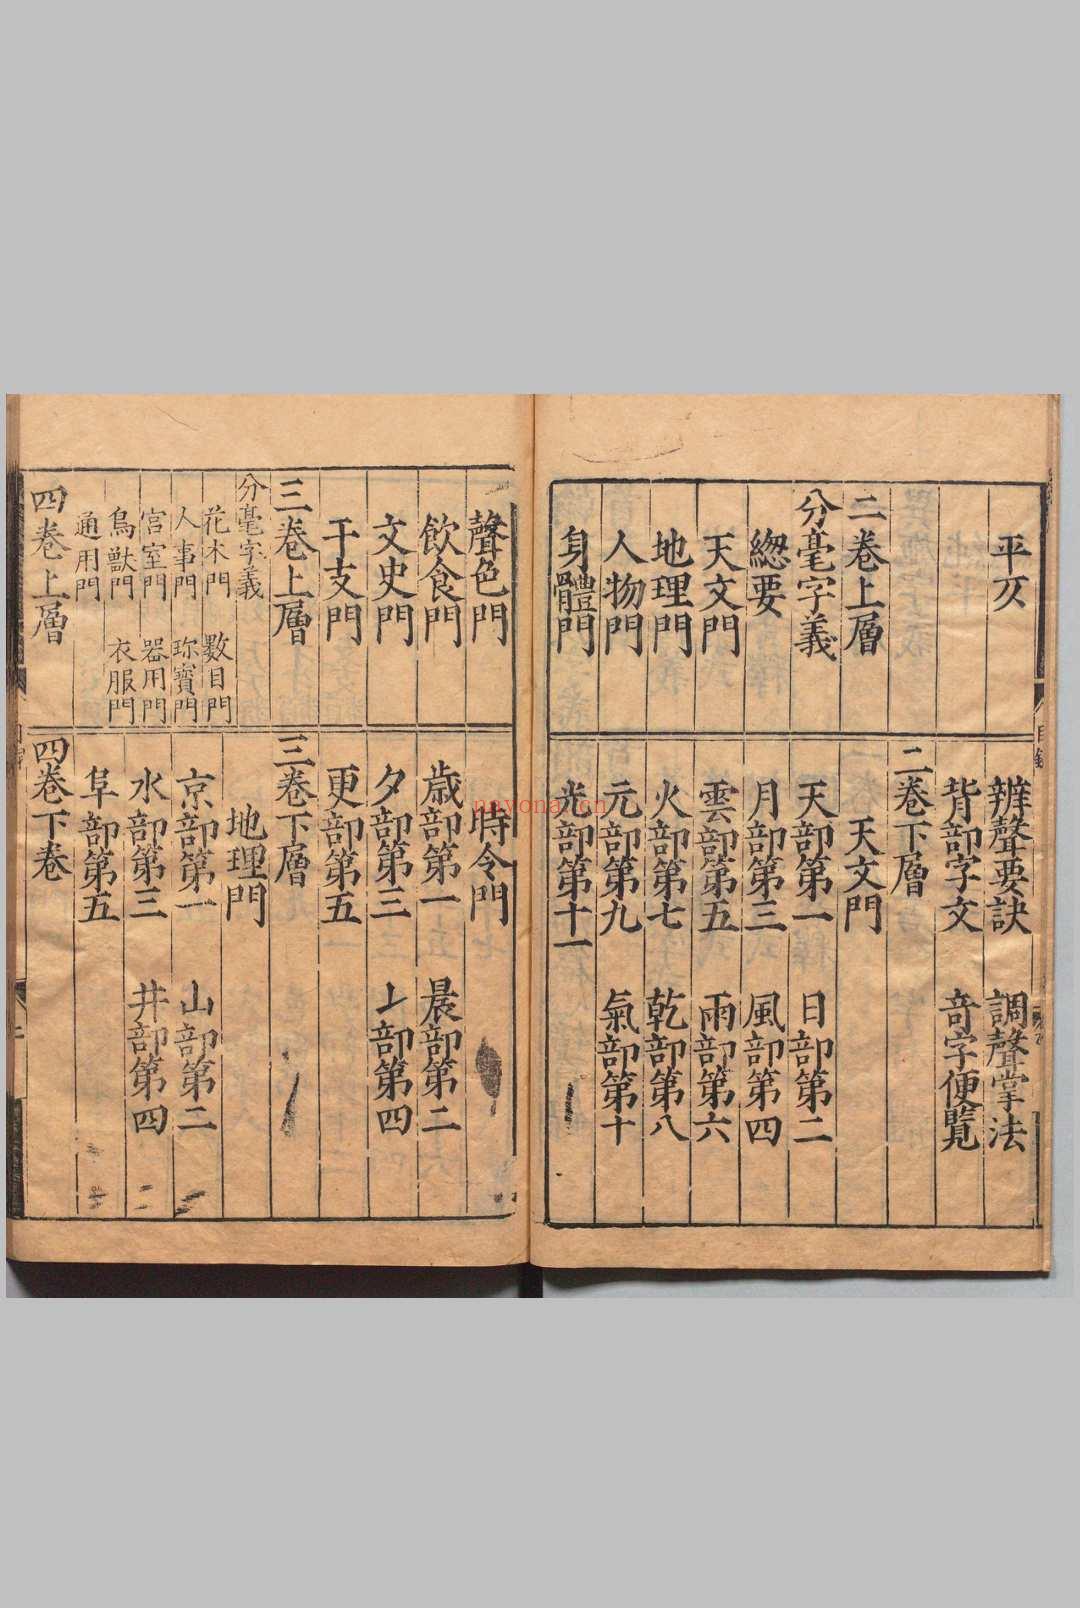 平仄
二巻上層
分毫字義
緫要
天文門
地理門
人物門
身體門
辨聲要訣　調聲掌法
背部字文　竒字便覽
二巻下層
天文門
天部第一　日部第二
月部第三　風部第四
雲部第五　雨部第六
火部第七　乾部第八
元部第九　氣部第十
光部第十一
聲色門
飲食門
文史門
干支門
三巻上層
分毫字義
花木門　數目門
人事門　珎寳門
宫室門　器用門
鳥獸門　衣服門
通用門
四巻上層
時令門
歳部第一　晨部第二
夕部第三　丄部第四
更部第五
三巻下層
地理門
京部第一　山部第二
水部第三　井部第四
阜部第五
四巻下巻
目錄
nayona.cn